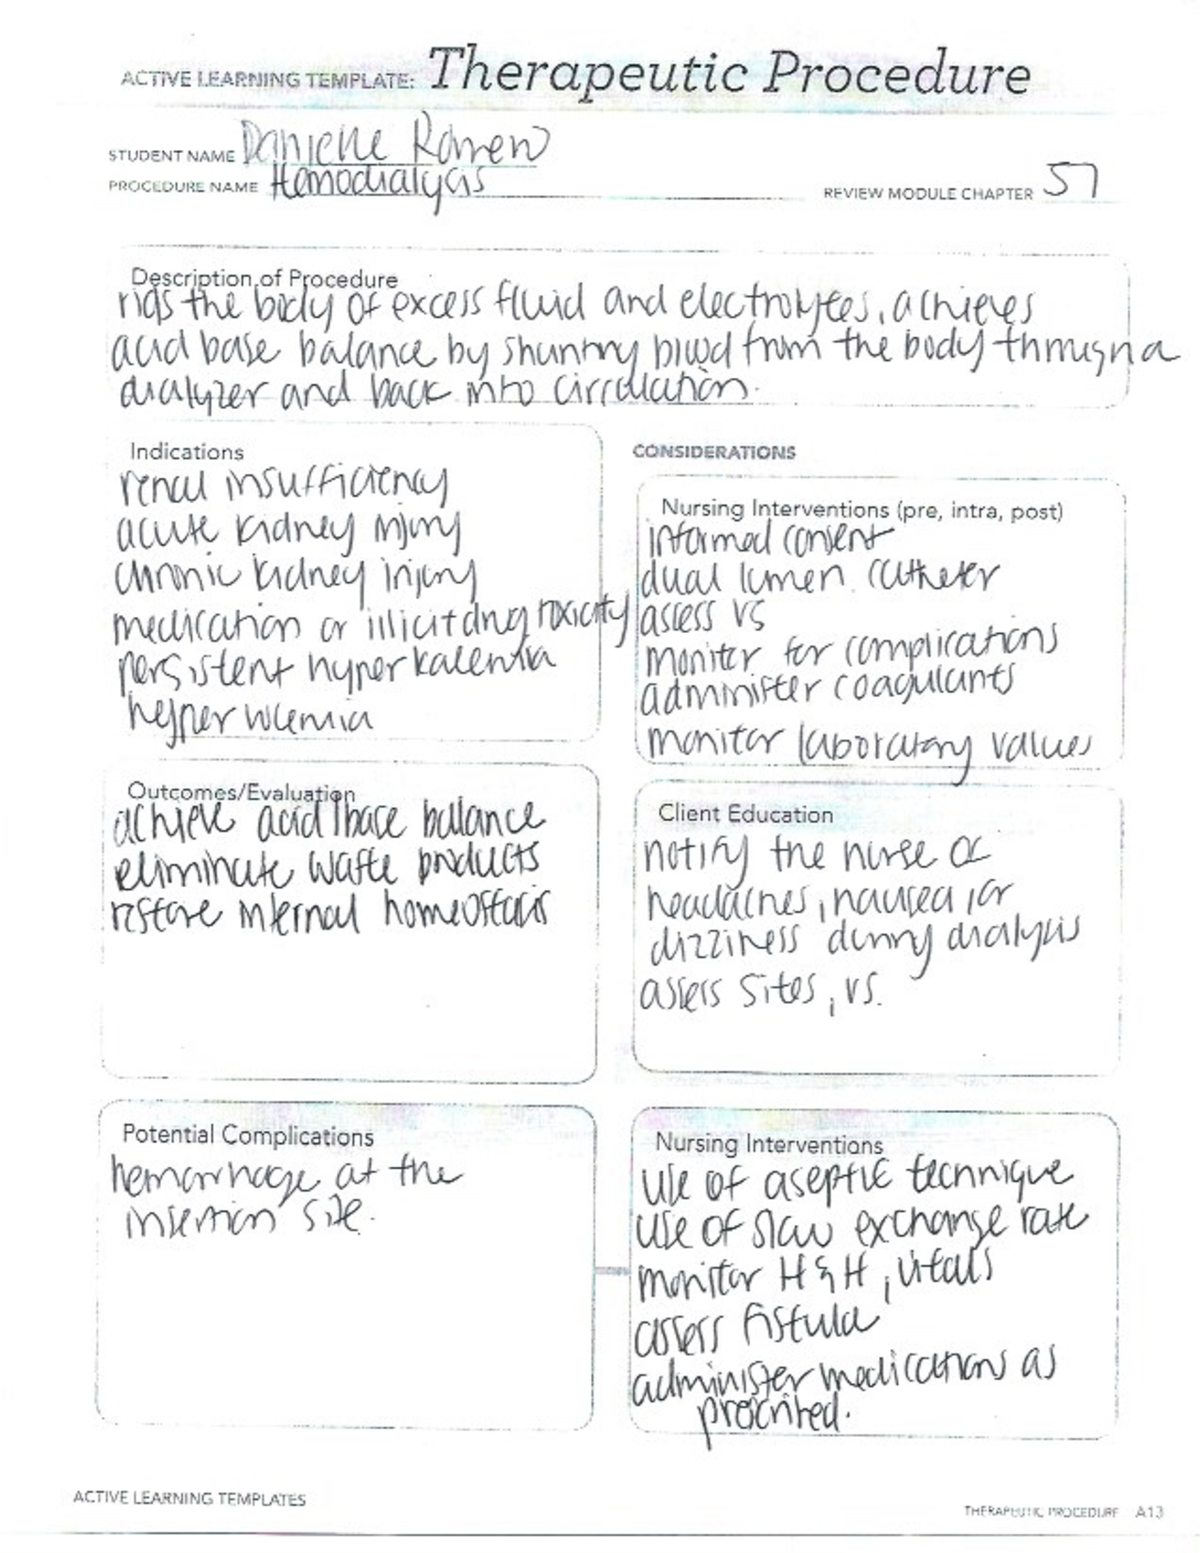 ACTIVE LEARNING TEMPLATE: Therapeutic Procedure
STUDENT NAME Danielle
PROCEDURE NAME Hemodialysis
REVIEW MODULE CHAPTER 57
Description of Procedure
rids the body of excess fluid and electrolytes, achieves
acid base balance by shunting blood from the body through a
dialyzer and back into circulation.
Indications
renal insufficiency
acute kidney injury
chronic kidney injury
medication or illicit drug toxicity
persistent hyperkalemia
hypervolemia
CONSIDERATIONS
Nursing Interventions (pre, intra, post)
informed consent
dual lumen catheter
assess VS
monitor for complications
administer coagulants
monitor laboratory values
Outcomes/Evaluation
achieve acid/base balance
eliminate waste products
restore internal homeostasis
Client Education
notify the nurse of
headaches, nausea, or
dizziness during dialysis
assess sites, vs.
Potential Complications
hemorrhage at the
insertion site.
Nursing Interventions
use of aseptic technique
use of slow exchange rate
monitor H&H, vitals
assess fistula
administer medications as
prescribed.
ACTIVE LEARNING TEMPLATES
THERAPEUTIC PROCEDURE A13